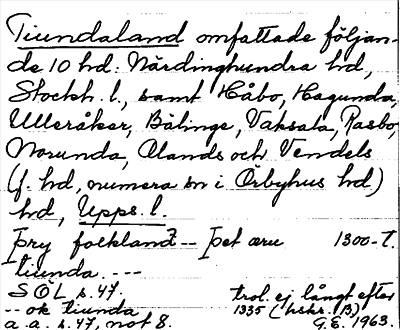 Tiundaland omfattade följan-
de 10 hd: Närdinghundra hd,
Stockh. l., samt Håbo, Hagunda,
Ulleråker, Bälinge, Vaksala, Rasbo,
Norunda, Olands och Vendels
(f. hd, numera sn i Örbyhus hd)
hd, Upps. l.
þry folkland -- þet æru 1300-t.
tiunda. ---
SOL s. 47. trol. ej långt efter
-- ok tiunda 1335 (hskr. B)
a. a. s. 47, not 8. G.E. 1963.